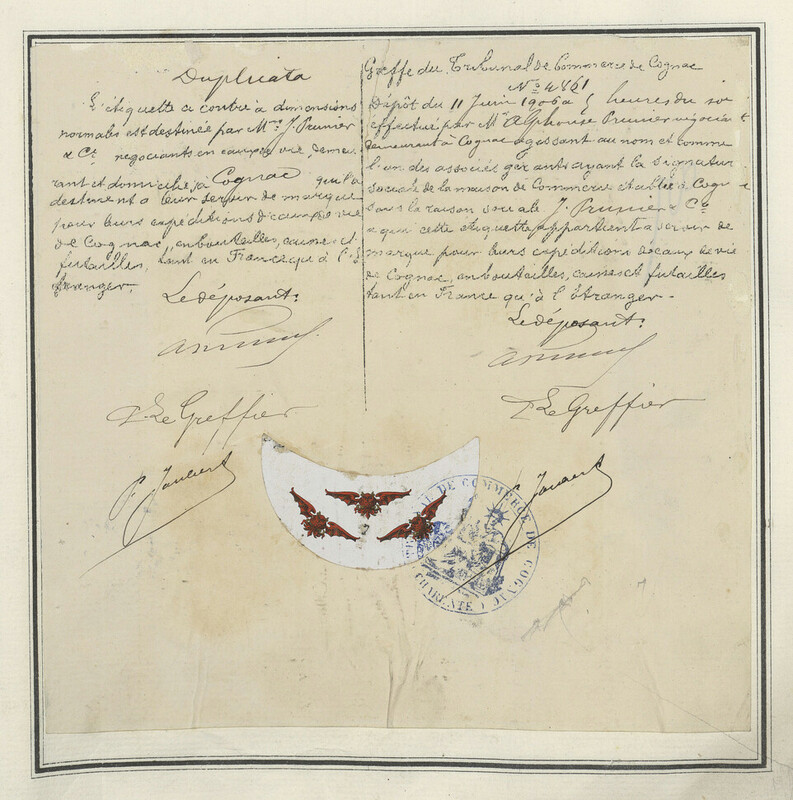 Duplicata
L'étiquette ci contre à dimensions
normales est destinée par Mrs J. Prunier
& Cie négociants en eaux de vie, demeu
rant et domiciliés à Cognac, qui la
destinent à leur servir de marque
pour leurs expéditions d'eaux de vie
de Cognac, en bouteilles, caisses et
futailles, tant en France qu'à l'É
tranger.
Le déposant:
Le Greffier
Greffe du Tribunal de Commerce de Cognac
No 4861
Dépôt du 11 Juin 1906 à 5 heures du soi
effectué par Mr Alphonse Prunier négocia t
demeurant à Cognac agissant au nom et comme
l'un des associés gérants ayant la signatur
sociale de la maison de Commerce établie à Cogn
sous la raison sociale J. Prunier & Cie
à qui cette étiquette appartient à servir de
marque pour leurs expéditions d'eaux de vie
de Cognac, en bouteilles, caisses et futailles
tant en France qu'à l'Étranger.
Le déposant:
Le Greffier
AL DE COMMERCE DE COGNAC
CHARENTE